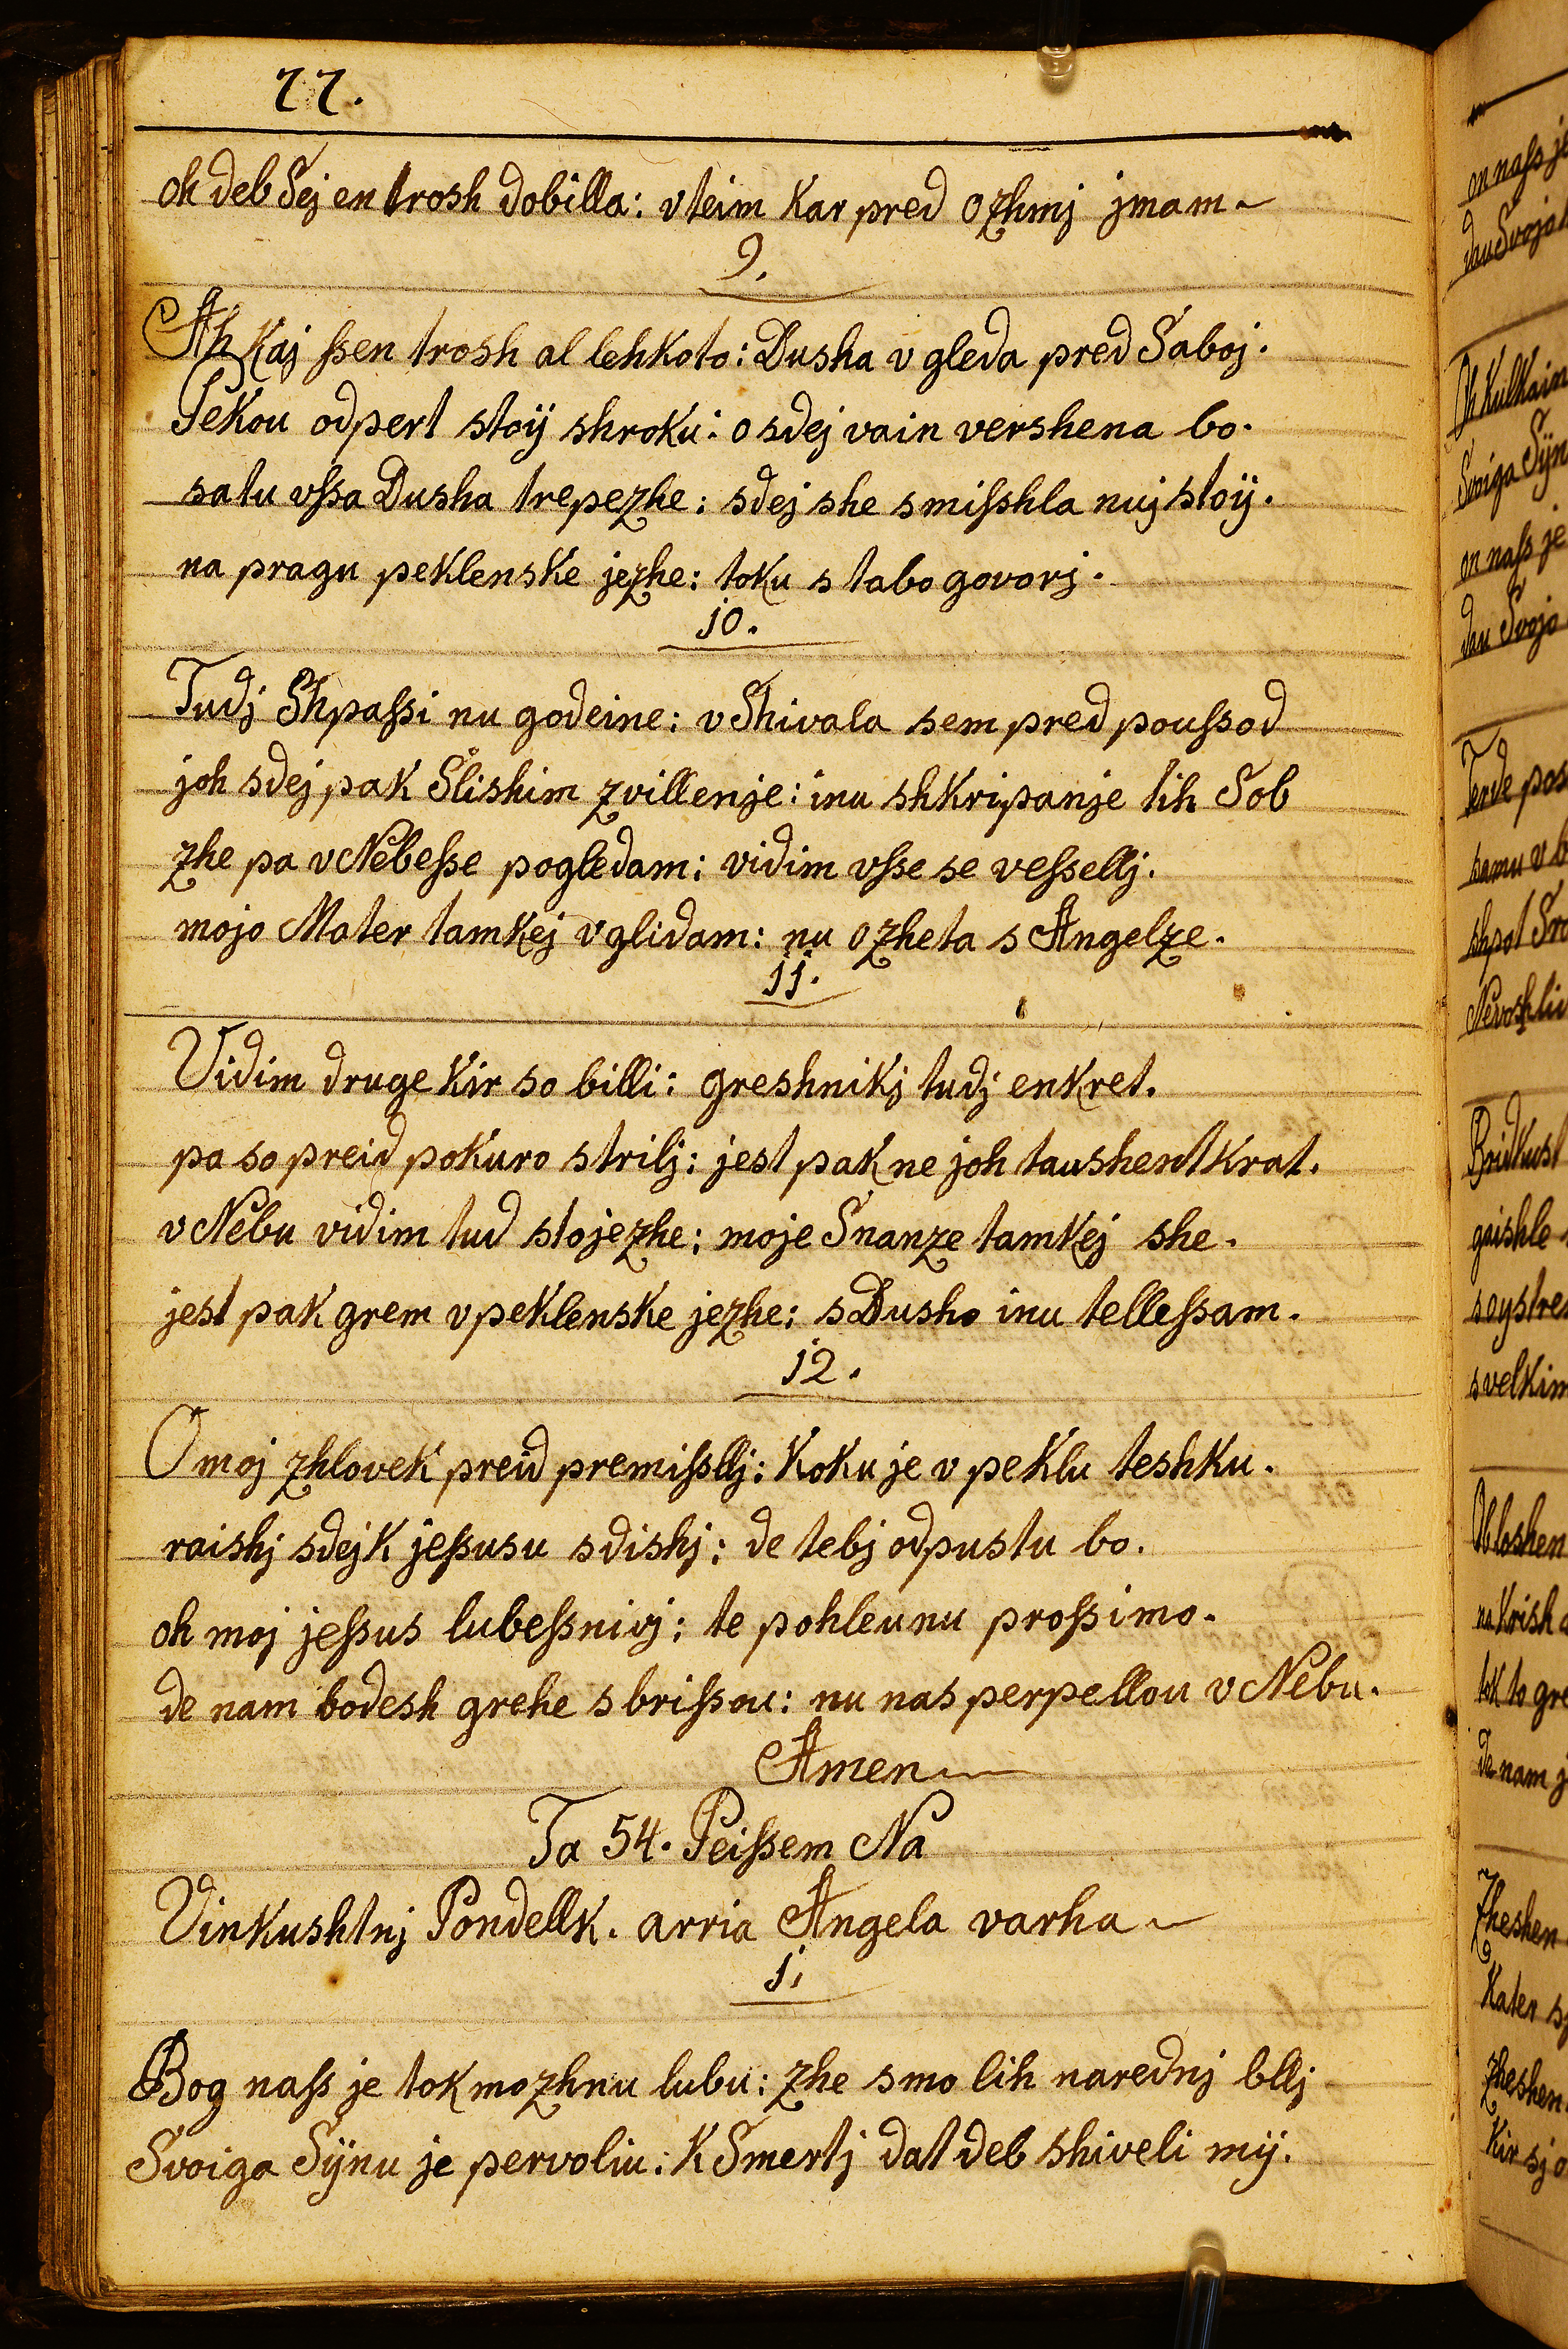 77.
oh deb Sej en trosh dobilla: vteim Kar pred ozhmj jmam
9.
Ah Kaj ſsen trosh al lehkoto: Dusha v gleda pred Saboj.
Pekou odpert stoÿ shroku: o sdej vain vershena bo.
satu vſsa Dusha trepezhe: sdej she smiſshla nuj stoÿ.
na pragu peklenske jezhe: toku s tabo govorj.
jo.
Tudj Shpaſsi nu godeine: vShivala sem pred pouſsod
joh sdej pak Slishim zvillenje: inu shkripanje tih Sob
zhe pa vNebeſse pogledam: vidim vſse se veſsellj.
mojo Mater tamkej vglidam: nu ozheta s Angelze.
jj.
Vidim druge Kir so billi: greshnikj tudj enkret.
pa so preid pokuro strilj: jest pak ne joh taushentkrat.
vNebu vidim tud stojezhe: moje Snanze tamkej she.
jest pak grem vpeklenske jezhe: sDusho inu telleſsam.
j2.
O moj zhlovek preid premiſsllj: Koku je v peklu teshku.
raishj sdejk jeſsusu sdishj: de tebj odpustu bo.
oh moj jeſsus lubeſsnivj: te pohleunu proſsimo.
de nam bodesh grehe sbriſsou: nu nas perpellou vNebu.
Amen
Ta 54. Peiſsem Na
Vinkushtnj Pondellk. arria Angela varha
j.
Bog naſs je tok mozhnu lubu: zhe smo lih narednj bllj
Svoiga Sÿnu je pervoliu: K Smertj dat deb shiveli mÿ.
on naſs je
dau Svojo
Svoiga Sÿn
on naſs je
dau Svojo
Terde
samu v
shpot
Bridkust
gaishle
svelkim
na Krish
tok to gre
de nam
Zheshen
Kater
zheshen
Kir sj